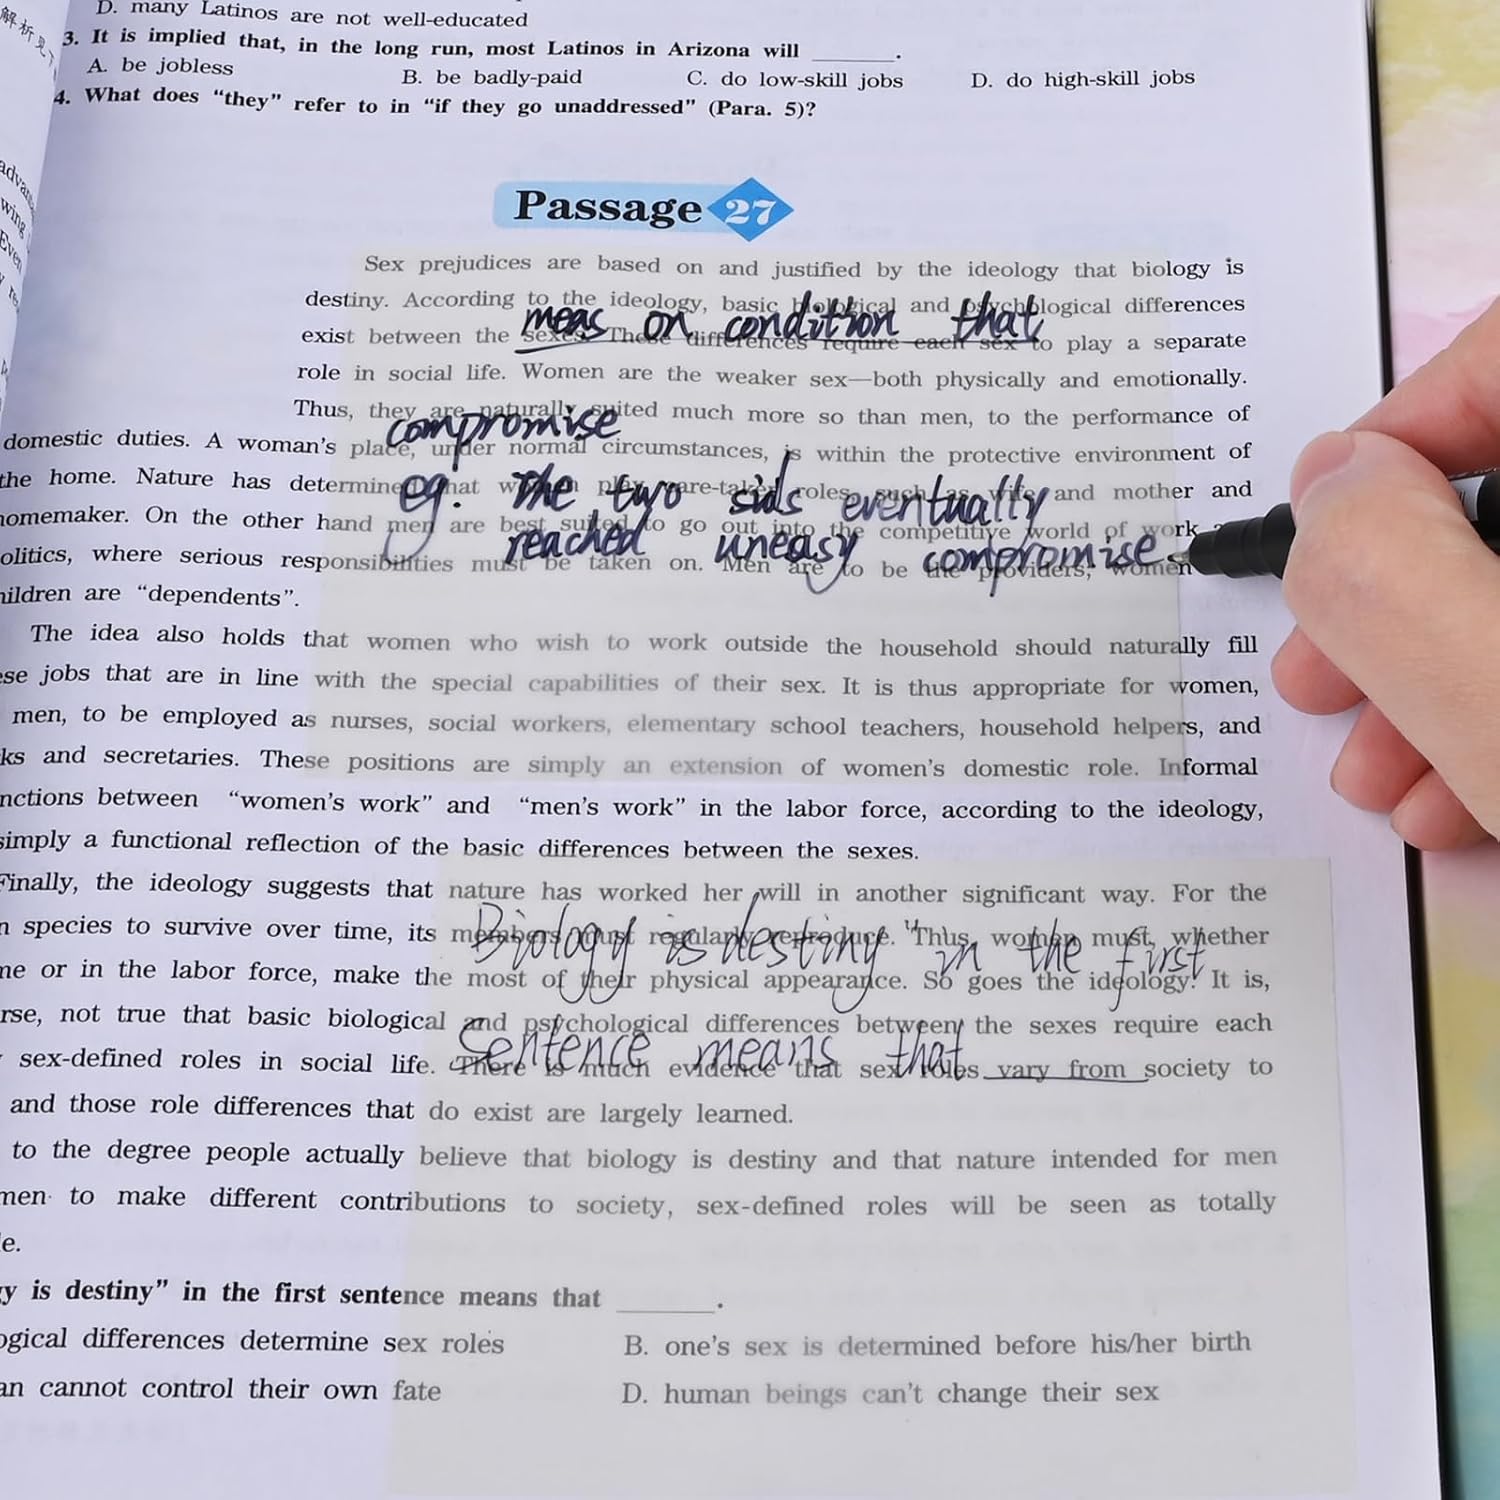 解析见下
D. many Latinos are not well-educated
3. It is implied that, in the long run, most Latinos in Arizona will ______.
A. be jobless B. be badly-paid C. do low-skill jobs D. do high-skill jobs
4. What does “they” refer to in “if they go unaddressed” (Para. 5)?
Passage 27
Sex prejudices are based on and justified by the ideology that biology is
destiny. According to the ideology, basic biological and psychological differences
meas on condition that
exist between the sexes. These differences require each sex to play a separate
role in social life. Women are the weaker sex—both physically and emotionally.
Thus, they are naturally suited much more so than men, to the performance of
compromise
domestic duties. A woman’s place, under normal circumstances, is within the protective environment of
the home. Nature has determined that women play care-taker roles, such as wife and mother and
eg. The two sids eventually
homemaker. On the other hand men are best suited to go out into the competitive world of work
reached uneasy compromise
olitics, where serious responsibilities must be taken on. Men are to be the providers; women
hildren are “dependents”.
The idea also holds that women who wish to work outside the household should naturally fill
ese jobs that are in line with the special capabilities of their sex. It is thus appropriate for women,
men, to be employed as nurses, social workers, elementary school teachers, household helpers, and
ks and secretaries. These positions are simply an extension of women’s domestic role. Informal
nctions between “women’s work” and “men’s work” in the labor force, according to the ideology,
simply a functional reflection of the basic differences between the sexes.
Finally, the ideology suggests that nature has worked her will in another significant way. For the
n species to survive over time, its members must regularly reproduce. Thus, women must, whether
Biology is destiny "in the first
me or in the labor force, make the most of their physical appearance. So goes the ideology. It is,
rse, not true that basic biological and psychological differences between the sexes require each
Sentence means that
sex-defined roles in social life. There is much evidence that sex roles vary from society to
and those role differences that do exist are largely learned.
to the degree people actually believe that biology is destiny and that nature intended for men
men to make different contributions to society, sex-defined roles will be seen as totally
le.
gy is destiny” in the first sentence means that ______.
ogical differences determine sex roles B. one’s sex is determined before his/her birth
an cannot control their own fate D. human beings can’t change their sex